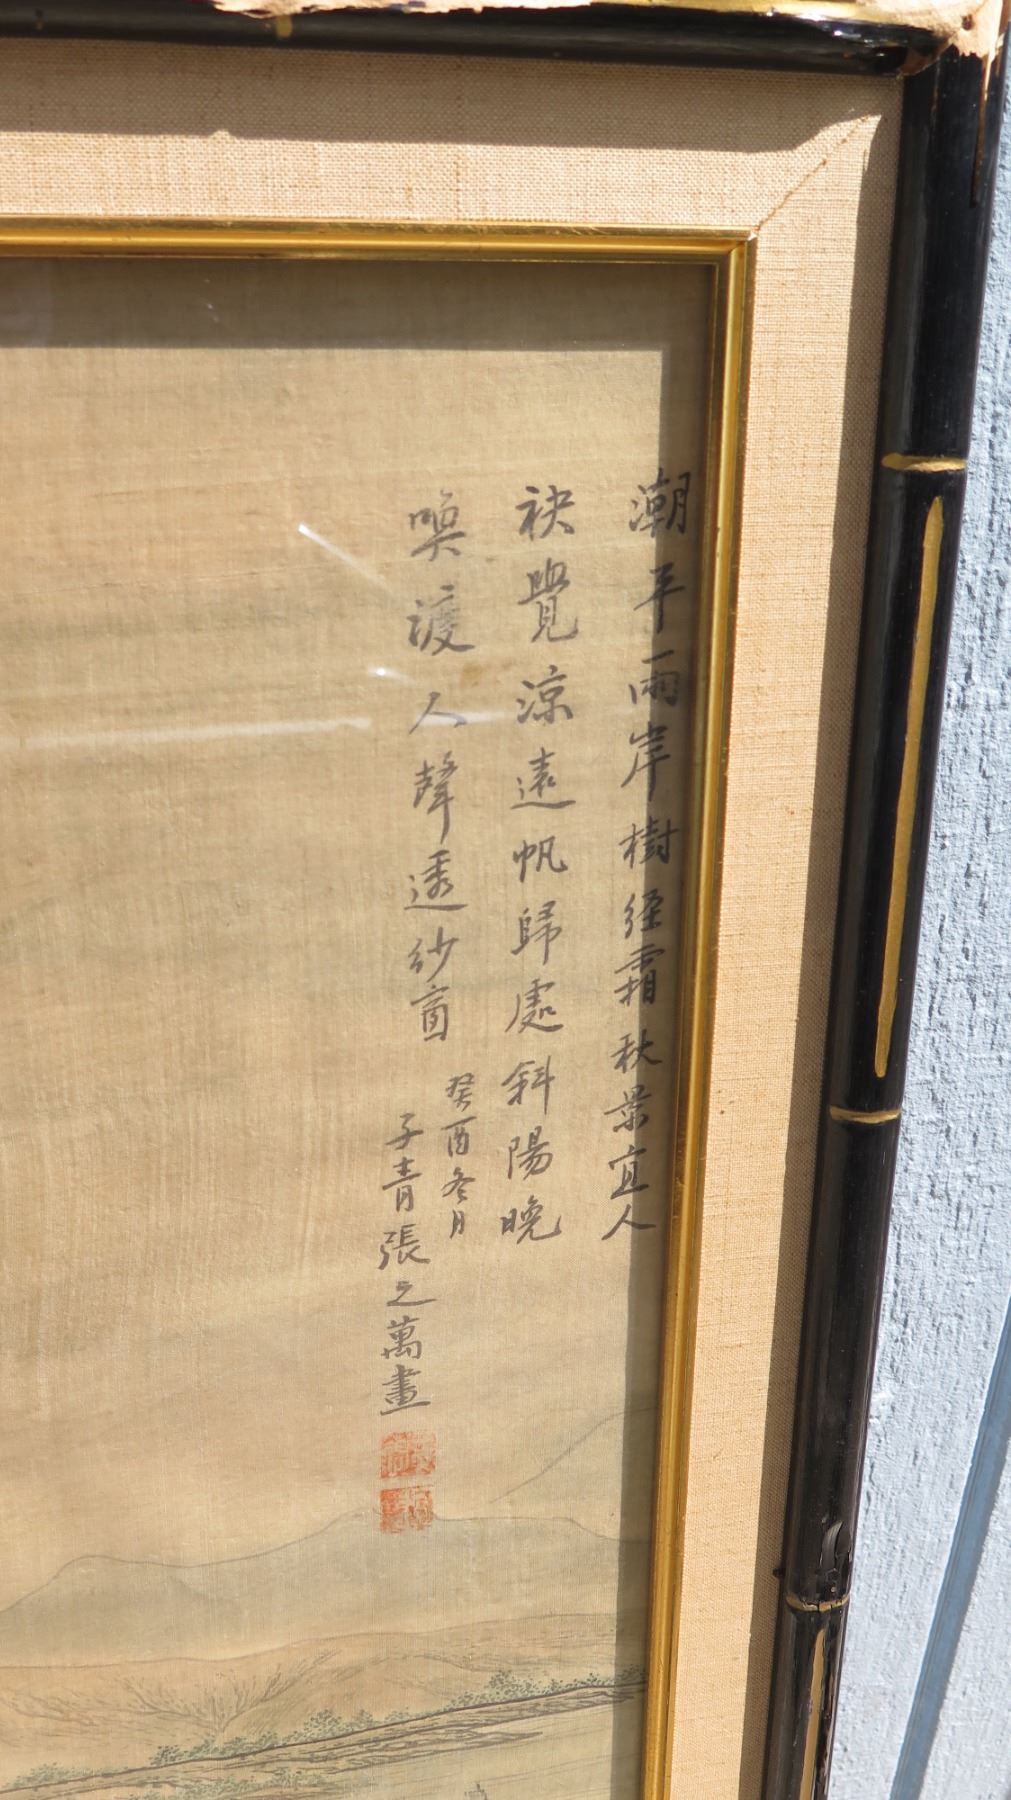 潮平兩岸樹經霜秋景宜人
袂覺涼遠帆歸處斜陽晚
喚渡人聲透紗窗
癸酉冬月
子青張之萬畫